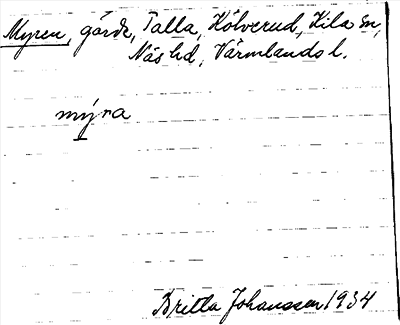 Myren, gårde, Talla, Hölverud, Kila sn,
Näs hd, Värmlands l.
my̱ra
Britta Johansson 1934